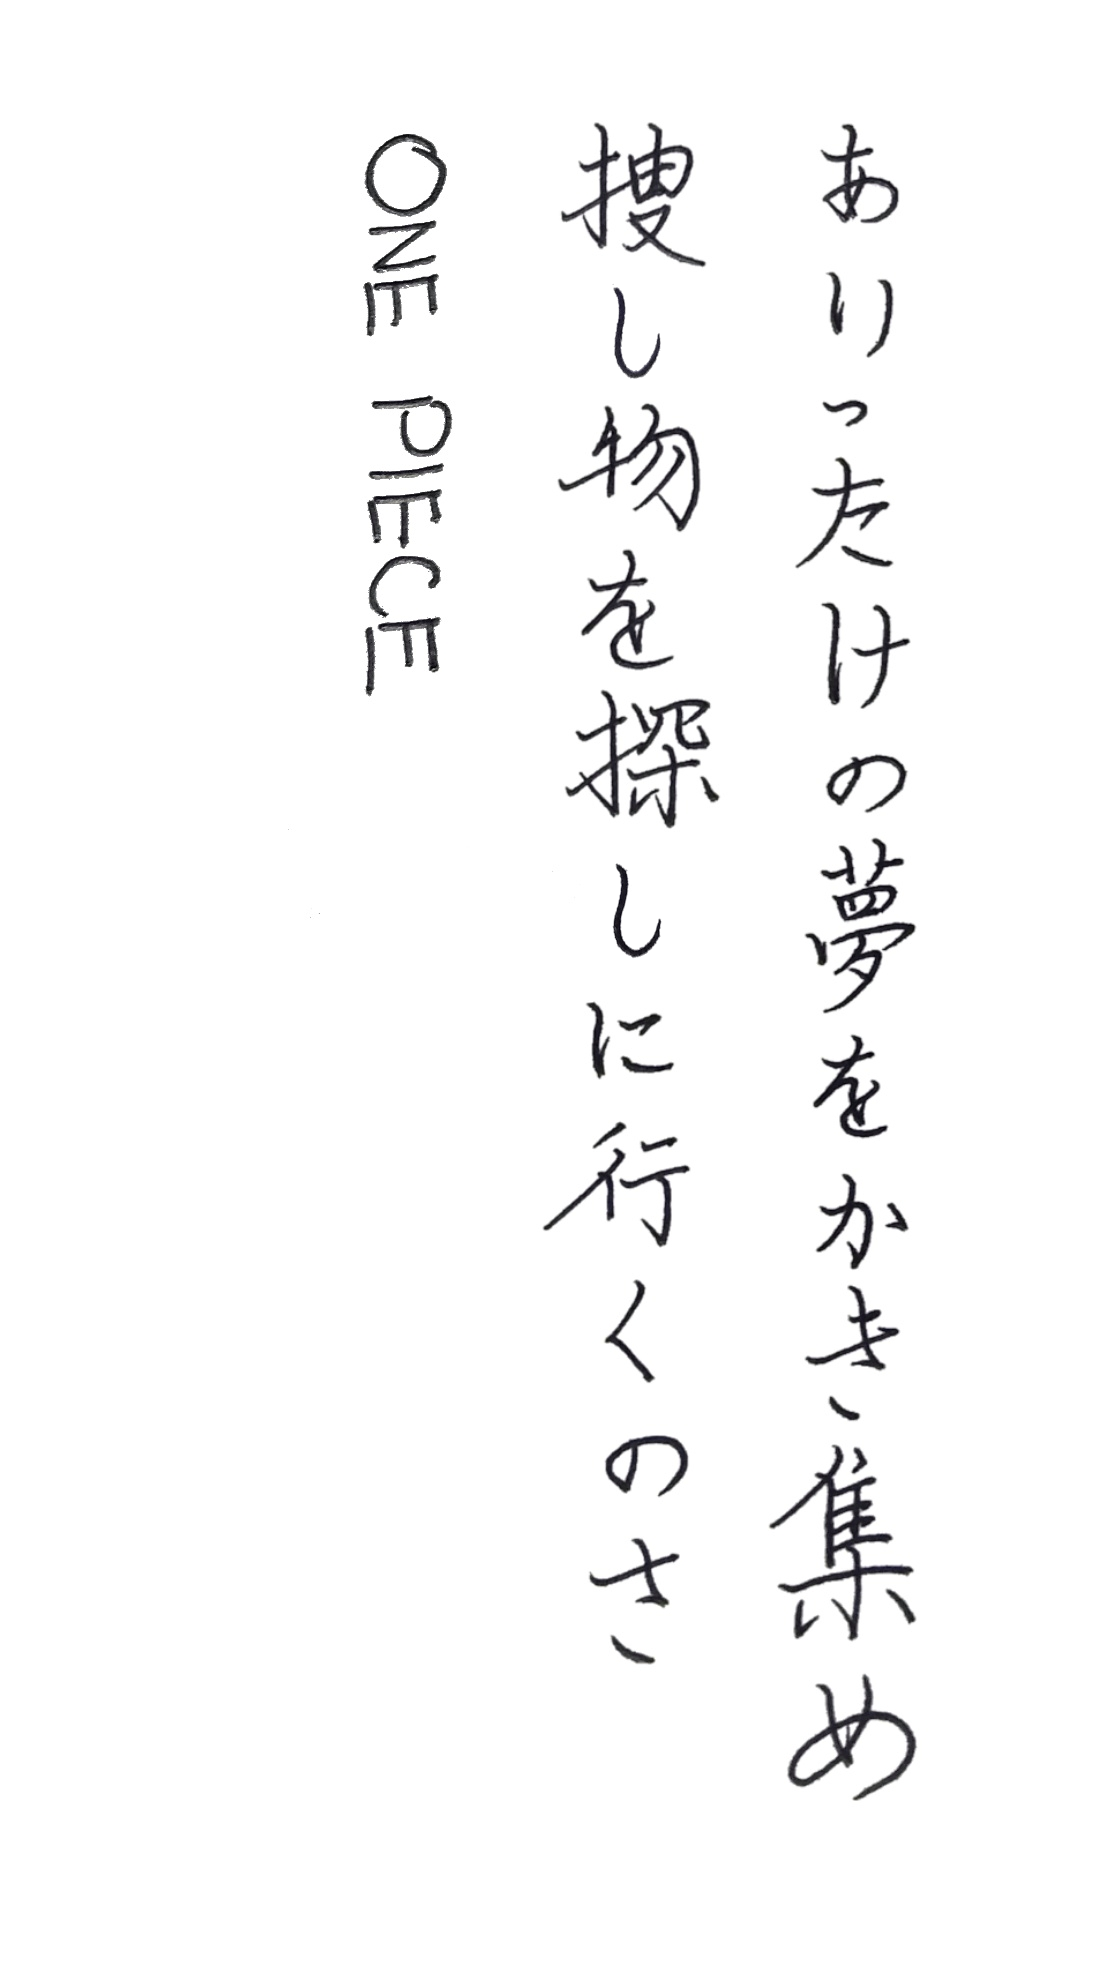 ありったけの夢をかき集め
捜し物を探しに行くのさ
ONE PIECE